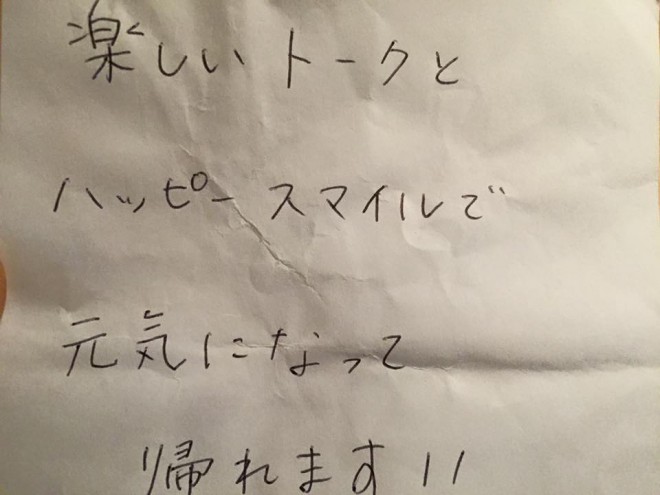 楽しいトークと
ハッピースマイルで
元気になって
帰れます!!